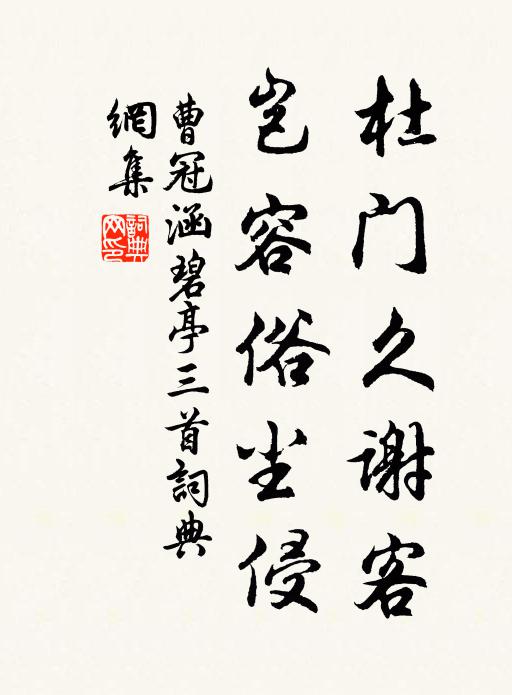 杜门久谢客
岂容俗尘侵
曹冠涵碧亭三首詞典
網集
詞典网印